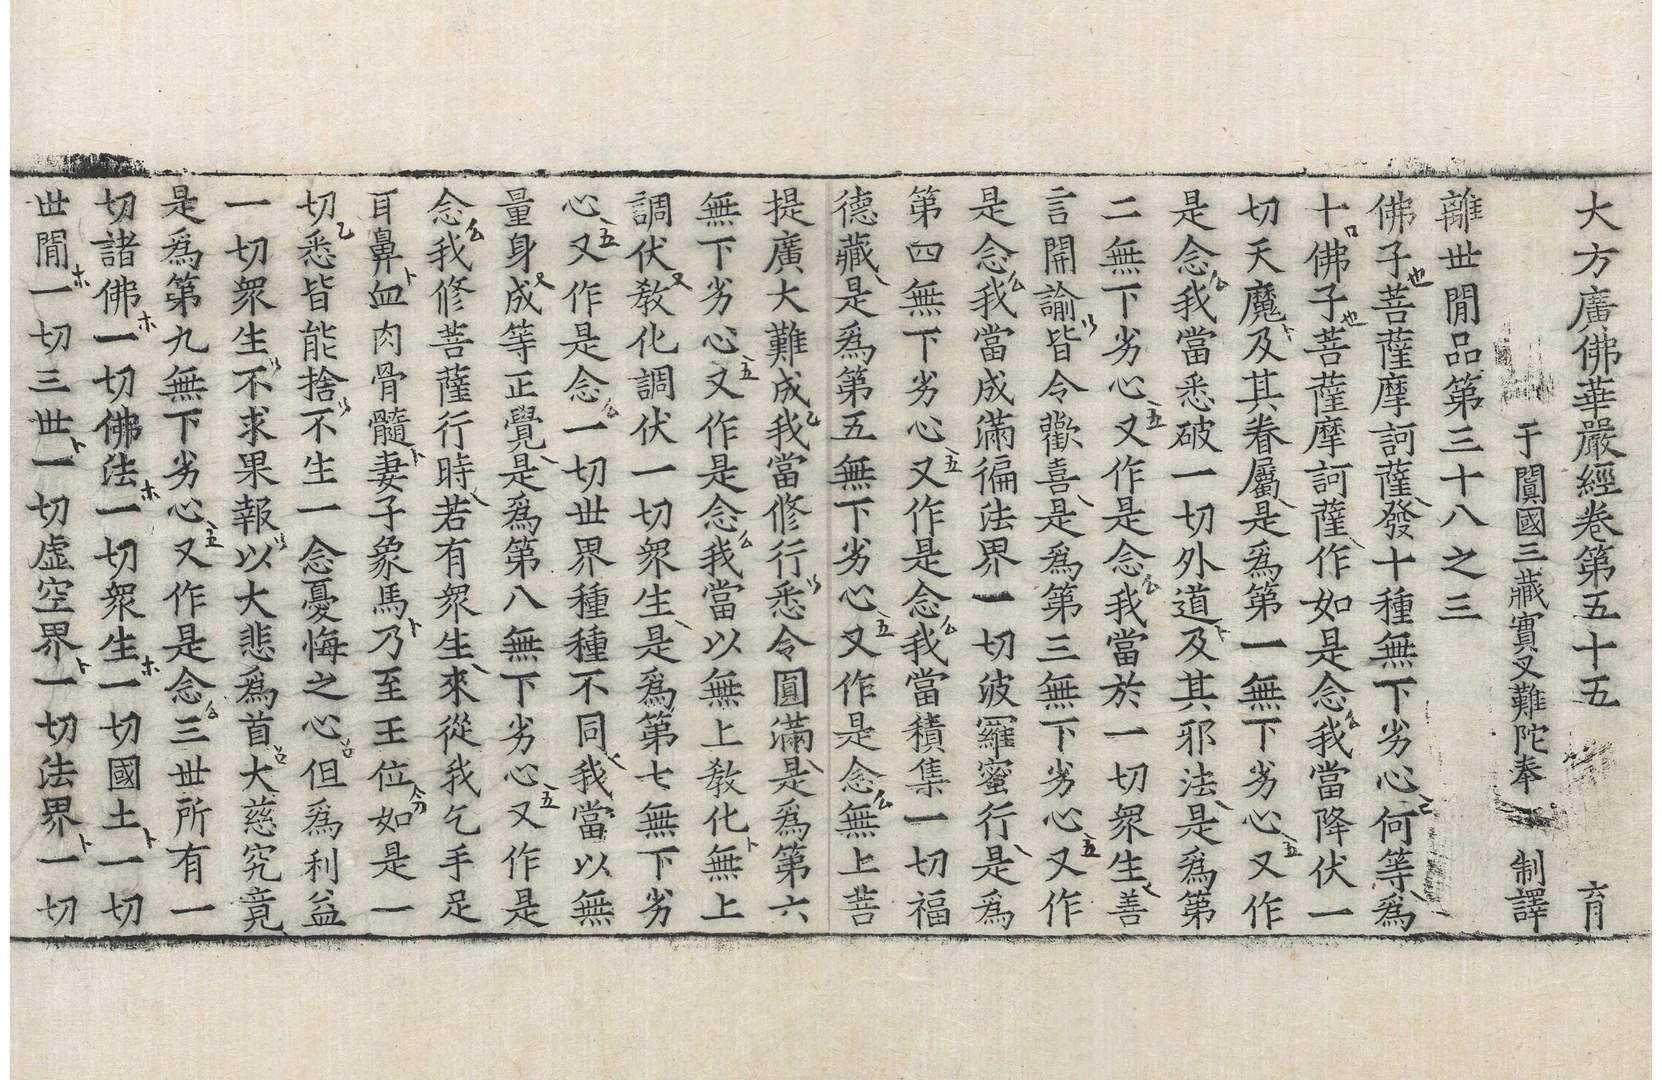 大方廣佛華嚴經卷第五十五 育
于闐國三藏實叉難陀奉 制譯
離世間品第三十八之三
佛子菩薩摩訶薩發十種無下劣心何等爲
十佛子菩薩摩訶薩作如是念我當降伏一
切天魔及其眷屬是爲第一無下劣心又作
是念我當悉破一切外道及其邪法是爲第
二無下劣心又作是念我當於一切衆生善
言開諭皆令歡喜是爲第三無下劣心又作
是念我當成滿徧法界一切波羅蜜行是爲
第四無下劣心又作是念我當積集一切福
德藏是爲第五無下劣心又作是念無上菩
提廣大難成我當修行悉令圓滿是爲第六
無下劣心又作是念我當以無上教化無上
調伏教化調伏一切衆生是爲第七無下劣
心又作是念一切世界種種不同我當以無
量身成等正覺是爲第八無下劣心又作是
念我修菩薩行時若有衆生來從我乞手足
耳鼻血肉骨髓妻子象馬乃至王位如是一
切悉皆能捨不生一念憂悔之心但爲利益
一切衆生不求果報以大悲爲首大慈究竟
是爲第九無下劣心又作是念三世所有一
切諸佛一切佛法一切衆生一切國土一切
世間一切三世一切虛空界一切法界一切